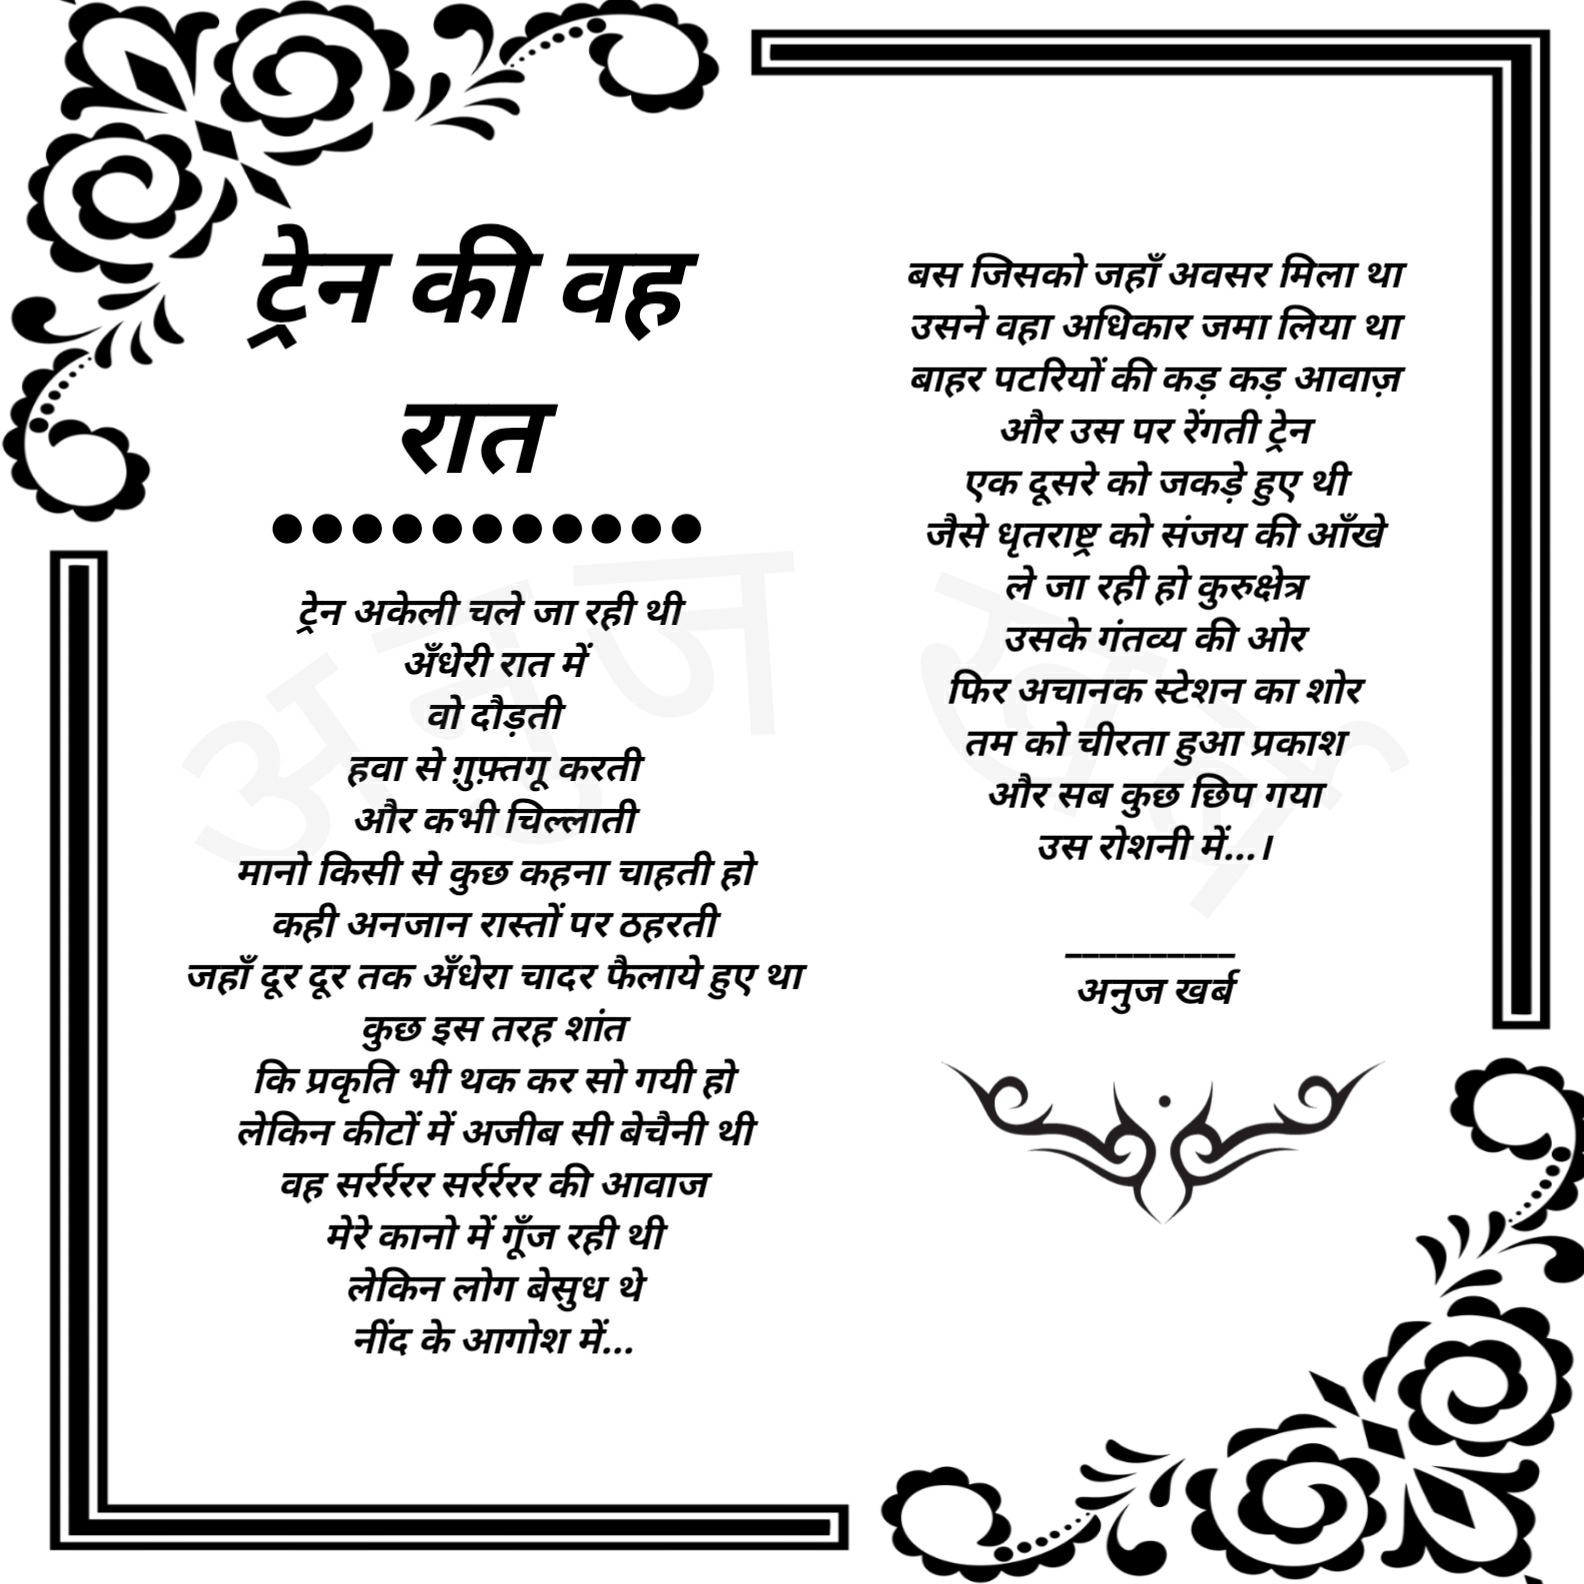 ट्रेन की वह
रात
●●●●●●●●●●●
ट्रेन अकेली चले जा रही थी
अँधेरी रात में
वो दौड़ती
हवा से ग़ुफ़्तगू करती
और कभी चिल्लाती
मानो किसी से कुछ कहना चाहती हो
कही अनजान रास्तों पर ठहरती
जहाँ दूर दूर तक अँधेरा चादर फैलाये हुए था
कुछ इस तरह शांत
कि प्रकृति भी थक कर सो गयी हो
लेकिन कीटों में अजीब सी बेचैनी थी
वह सर्रर्ररर सर्रर्ररर की आवाज
मेरे कानो में गूँज रही थी
लेकिन लोग बेसुध थे
नींद के आगोश में...
बस जिसको जहाँ अवसर मिला था
उसने वहा अधिकार जमा लिया था
बाहर पटरियों की कड़ कड़ आवाज़
और उस पर रेंगती ट्रेन
एक दूसरे को जकड़े हुए थी
जैसे धृतराष्ट्र को संजय की आँखे
ले जा रही हो कुरुक्षेत्र
उसके गंतव्य की ओर
फिर अचानक स्टेशन का शोर
तम को चीरता हुआ प्रकाश
और सब कुछ छिप गया
उस रोशनी में...।
__________
अनुज खर्ब
अनुज खर्ब